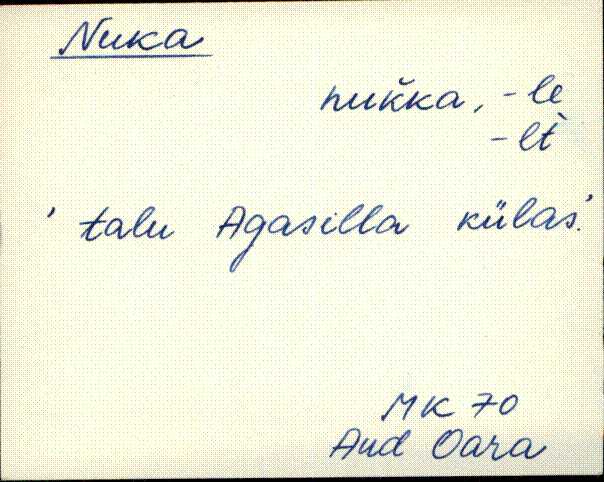 Nuka
nuk̆ka, -le
-lt̀
' talu Agasilla külas'.
MK 70
Aud Oara